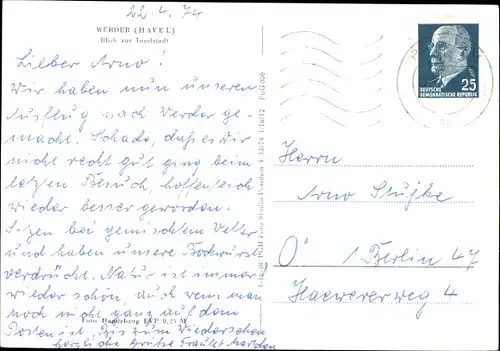 22.4.74
WERDER (HAVEL)
Blick zur Inselstadt
Lieber Arno!
Wir haben nun unseren
Ausflug nach Werder ge-
macht. Schade, daß es Dir
nicht recht gut ging beim
letzten Besuch, hoffentlich
wieder besser geworden.
Sitzen bei gemischtem Wetter
und haben unsere Bockwurst
verdrückt. Natur ist immer
wieder schön, auch wenn man
noch nicht ganz auf dem
Posten ist. Bis zum Wiedersehen
herzliche Grüße
Foto: Darnstaug EVP 0,25 M
DEUTSCHE
DEMOKRATISCHE REPUBLIK
25
Herrn
Arno
1 Berlin 47
4